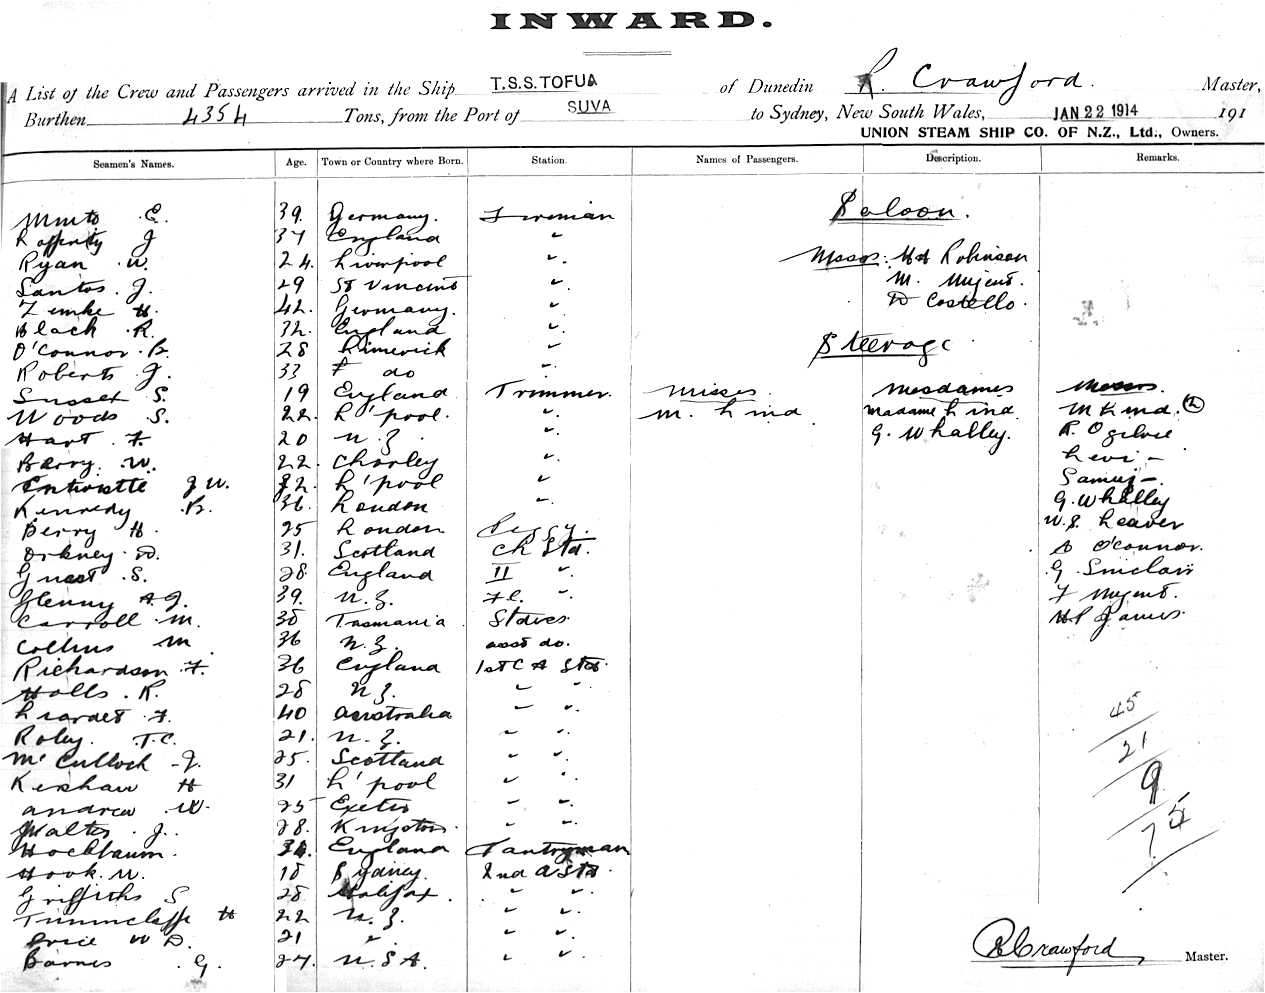 INWARD.
A List of the Crew and Passengers arrived in the Ship T.S.S. TOFUA of Dunedin R. Crawford. Master,
Burthen 4354 Tons, from the Port of SUVA to Sydney, New South Wales, JAN 22 1914 191
UNION STEAM SHIP CO. OF N.Z., Ltd., Owners.
Seamen's Names. Age. Town or Country where Born. Station. Names of Passengers. Description. Remarks.
E. 39. Germany. Fireman Saloon.
Rafferty J 37 England "
Ryan W. 24. Liverpool " Messrs. Robinson
Santos. J. 29 St Vincent " M. Nugent.
Zemke H. 42. Germany. " D Costello.
Black R. 32. England "
O'Connor. B. 28 Limerick " Steerage
Roberts J. 33 do "
S. 19 England Trimmer. Misses Mesdames Messrs.
Woods S. 22. L'pool. " M. Lind Madame Lind. M Lind. (2)
Hart. F. 20 N.Z. " G. Whalley. R. Ogilvie
Barry. W. 22. Chorley " Levi -
J W. L'pool "
Kennedy B. 36. London " G. Whalley
Berry H. 25 London Peggy. W.S. Leaver
Orkney. D. 31. Scotland Ch Std. O'Connor.
Guest S. 28. England II " G Sinclair
Glenny A.J. 39. N.Z. " F Nugent.
Carroll M. 38 Tasmania Stdess. James
Collins M 36 N.Z. asst do.
Richardson F. 36 England 1st C A Std.
Holls. R. 28 N.Z. " "
Liardet F. 40 Australia " " 45
Roley. T.C. 21. N.Z. " " 21
McCulloch J. 25. Scotland " "
Kershaw H 31 L'pool " " 9
Andrew W. 25 Exeter " "
Walter J. 28. Kingston. " " 75
Hochbaum. England Pantryman
Hook. W. 18 Sydney. 2nd A Std.
Griffiths S 28 Halifax. " "
H 22 N.Z. " "
Price W D. 21 " " "
Barnes G. 27. U.S.A. " "
R Crawford Master.